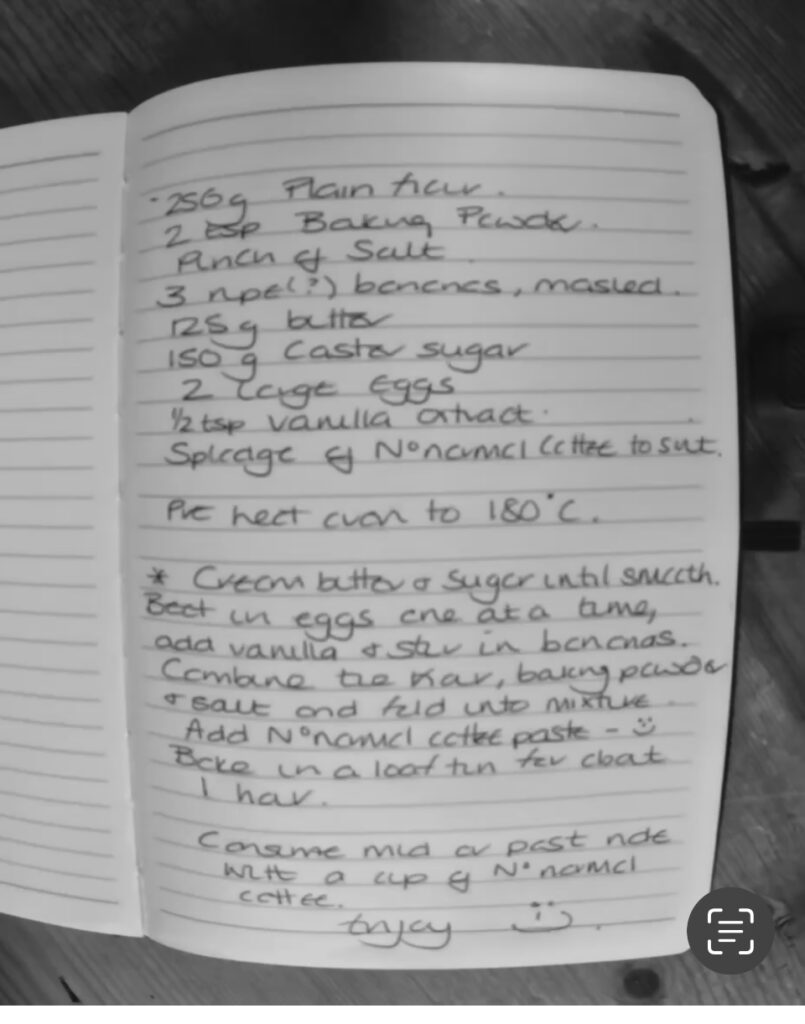 250g Plain flour.
2 tsp Baking Powder.
Pinch of Salt.
3 ripe(?) bananas, mashed.
125g butter
150g Caster sugar
2 large Eggs
1/2 tsp vanilla extract.
Splodge of Nº normal Coffee to suit.
Pre heat oven to 180°C.
* Cream butter & sugar until smooth.
Beat in eggs one at a time,
add vanilla & stir in bananas.
Combine the flour, baking powder
& salt and fold into mixture.
Add Nº normal coffee paste - :)
Bake in a loaf tin for about
1 hour.
Consume mid or post ride
with a cup of Nº normal
coffee.
Enjoy :).